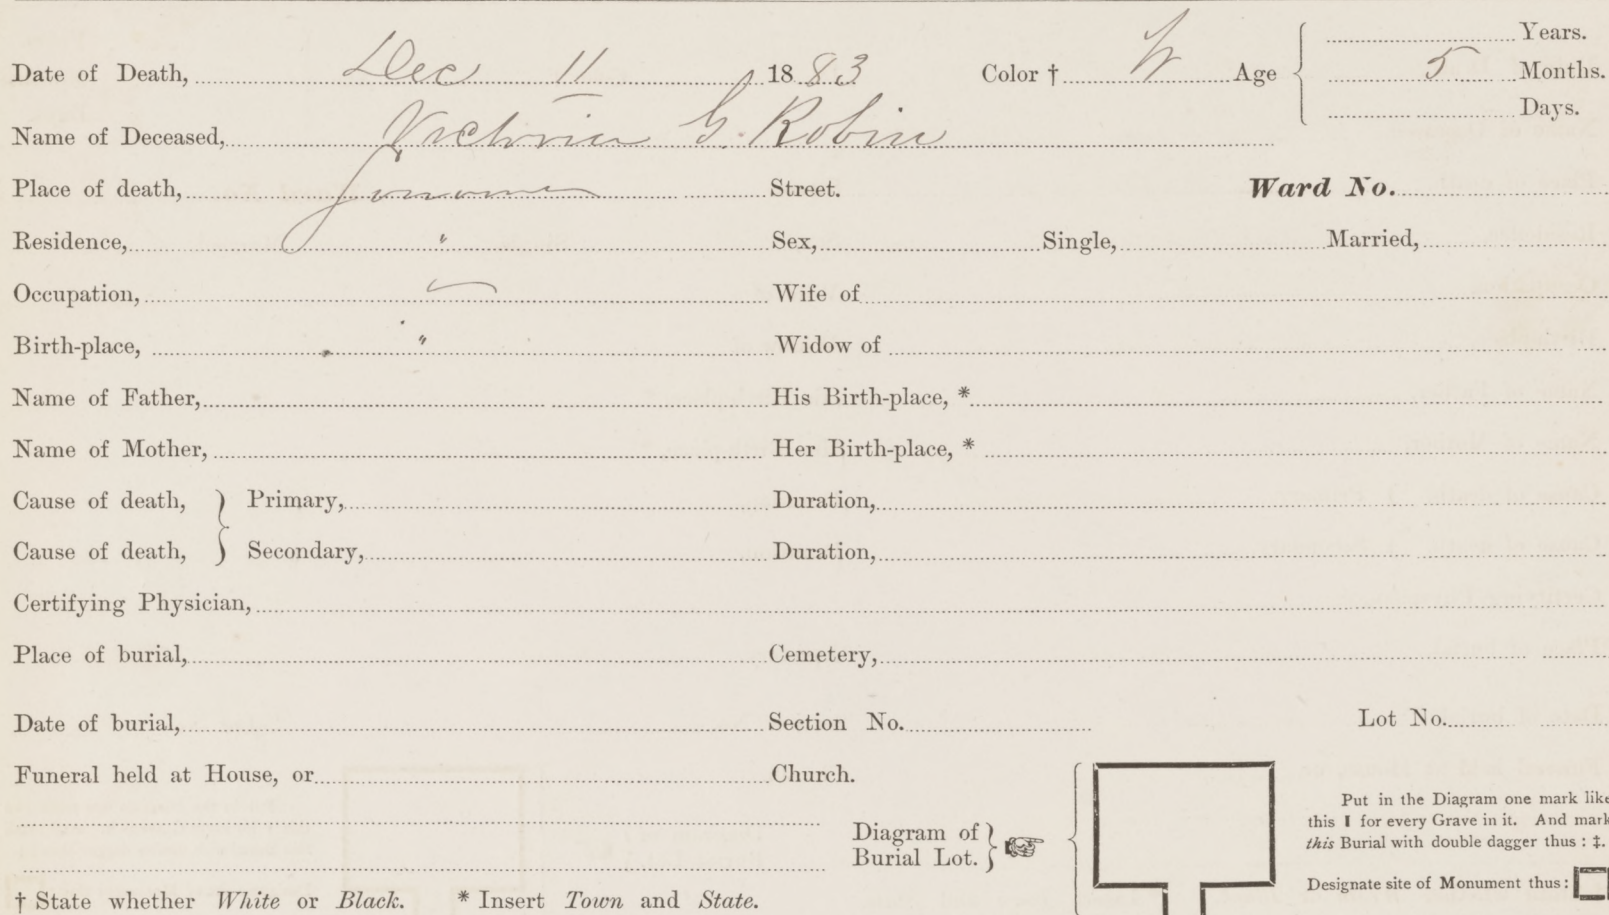 Date of Death, Dec 11 1883 Color † W Age Years.
5 Months.
Days.
Name of Deceased, Victoria G. Robin
Place of death, Sonoma Street. Ward No.
Residence, " Sex, Single, Married,
Occupation, Wife of
Birth-place, " Widow of
Name of Father, His Birth-place, *
Name of Mother, Her Birth-place, *
Cause of death, Primary, Duration,
Cause of death, Secondary, Duration,
Certifying Physician,
Place of burial, Cemetery,
Date of burial, Section No. Lot No.
Funeral held at House, or Church.
Diagram of
Burial Lot.
Put in the Diagram one mark like
this I for every Grave in it. And mark
this Burial with double dagger thus : ‡.
Designate site of Monument thus:
† State whether White or Black. * Insert Town and State.